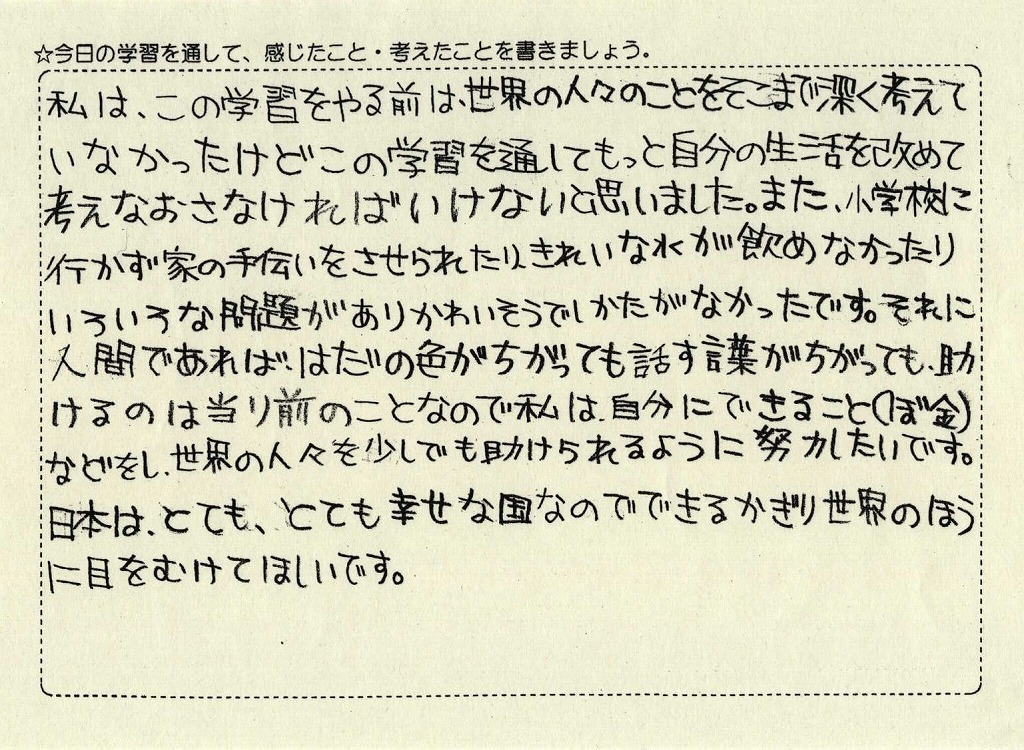 ☆今日の学習を通して、感じたこと・考えたことを書きましょう。
私は、この学習をやる前は、世界の人々のことをそこまで深く考えて
いなかったけどこの学習を通してもっと自分の生活を改めて
考えなおさなければいけないと思いました。また、小学校に
行かず家の手伝いをさせられたり、きれいな水が飲めなかったり
いろいろな問題がありかわいそうでしかたがなかったです。それに
人間であれば、はだの色がちがっても話す言葉がちがっても、助
けるのは当り前のことなので私は、自分にできること(ぼ金)
などをし、世界の人々を少しでも助けられるように努力したいです。
日本は、とても、とても幸せな国なのでできるかぎり世界のほう
に目をむけてほしいです。